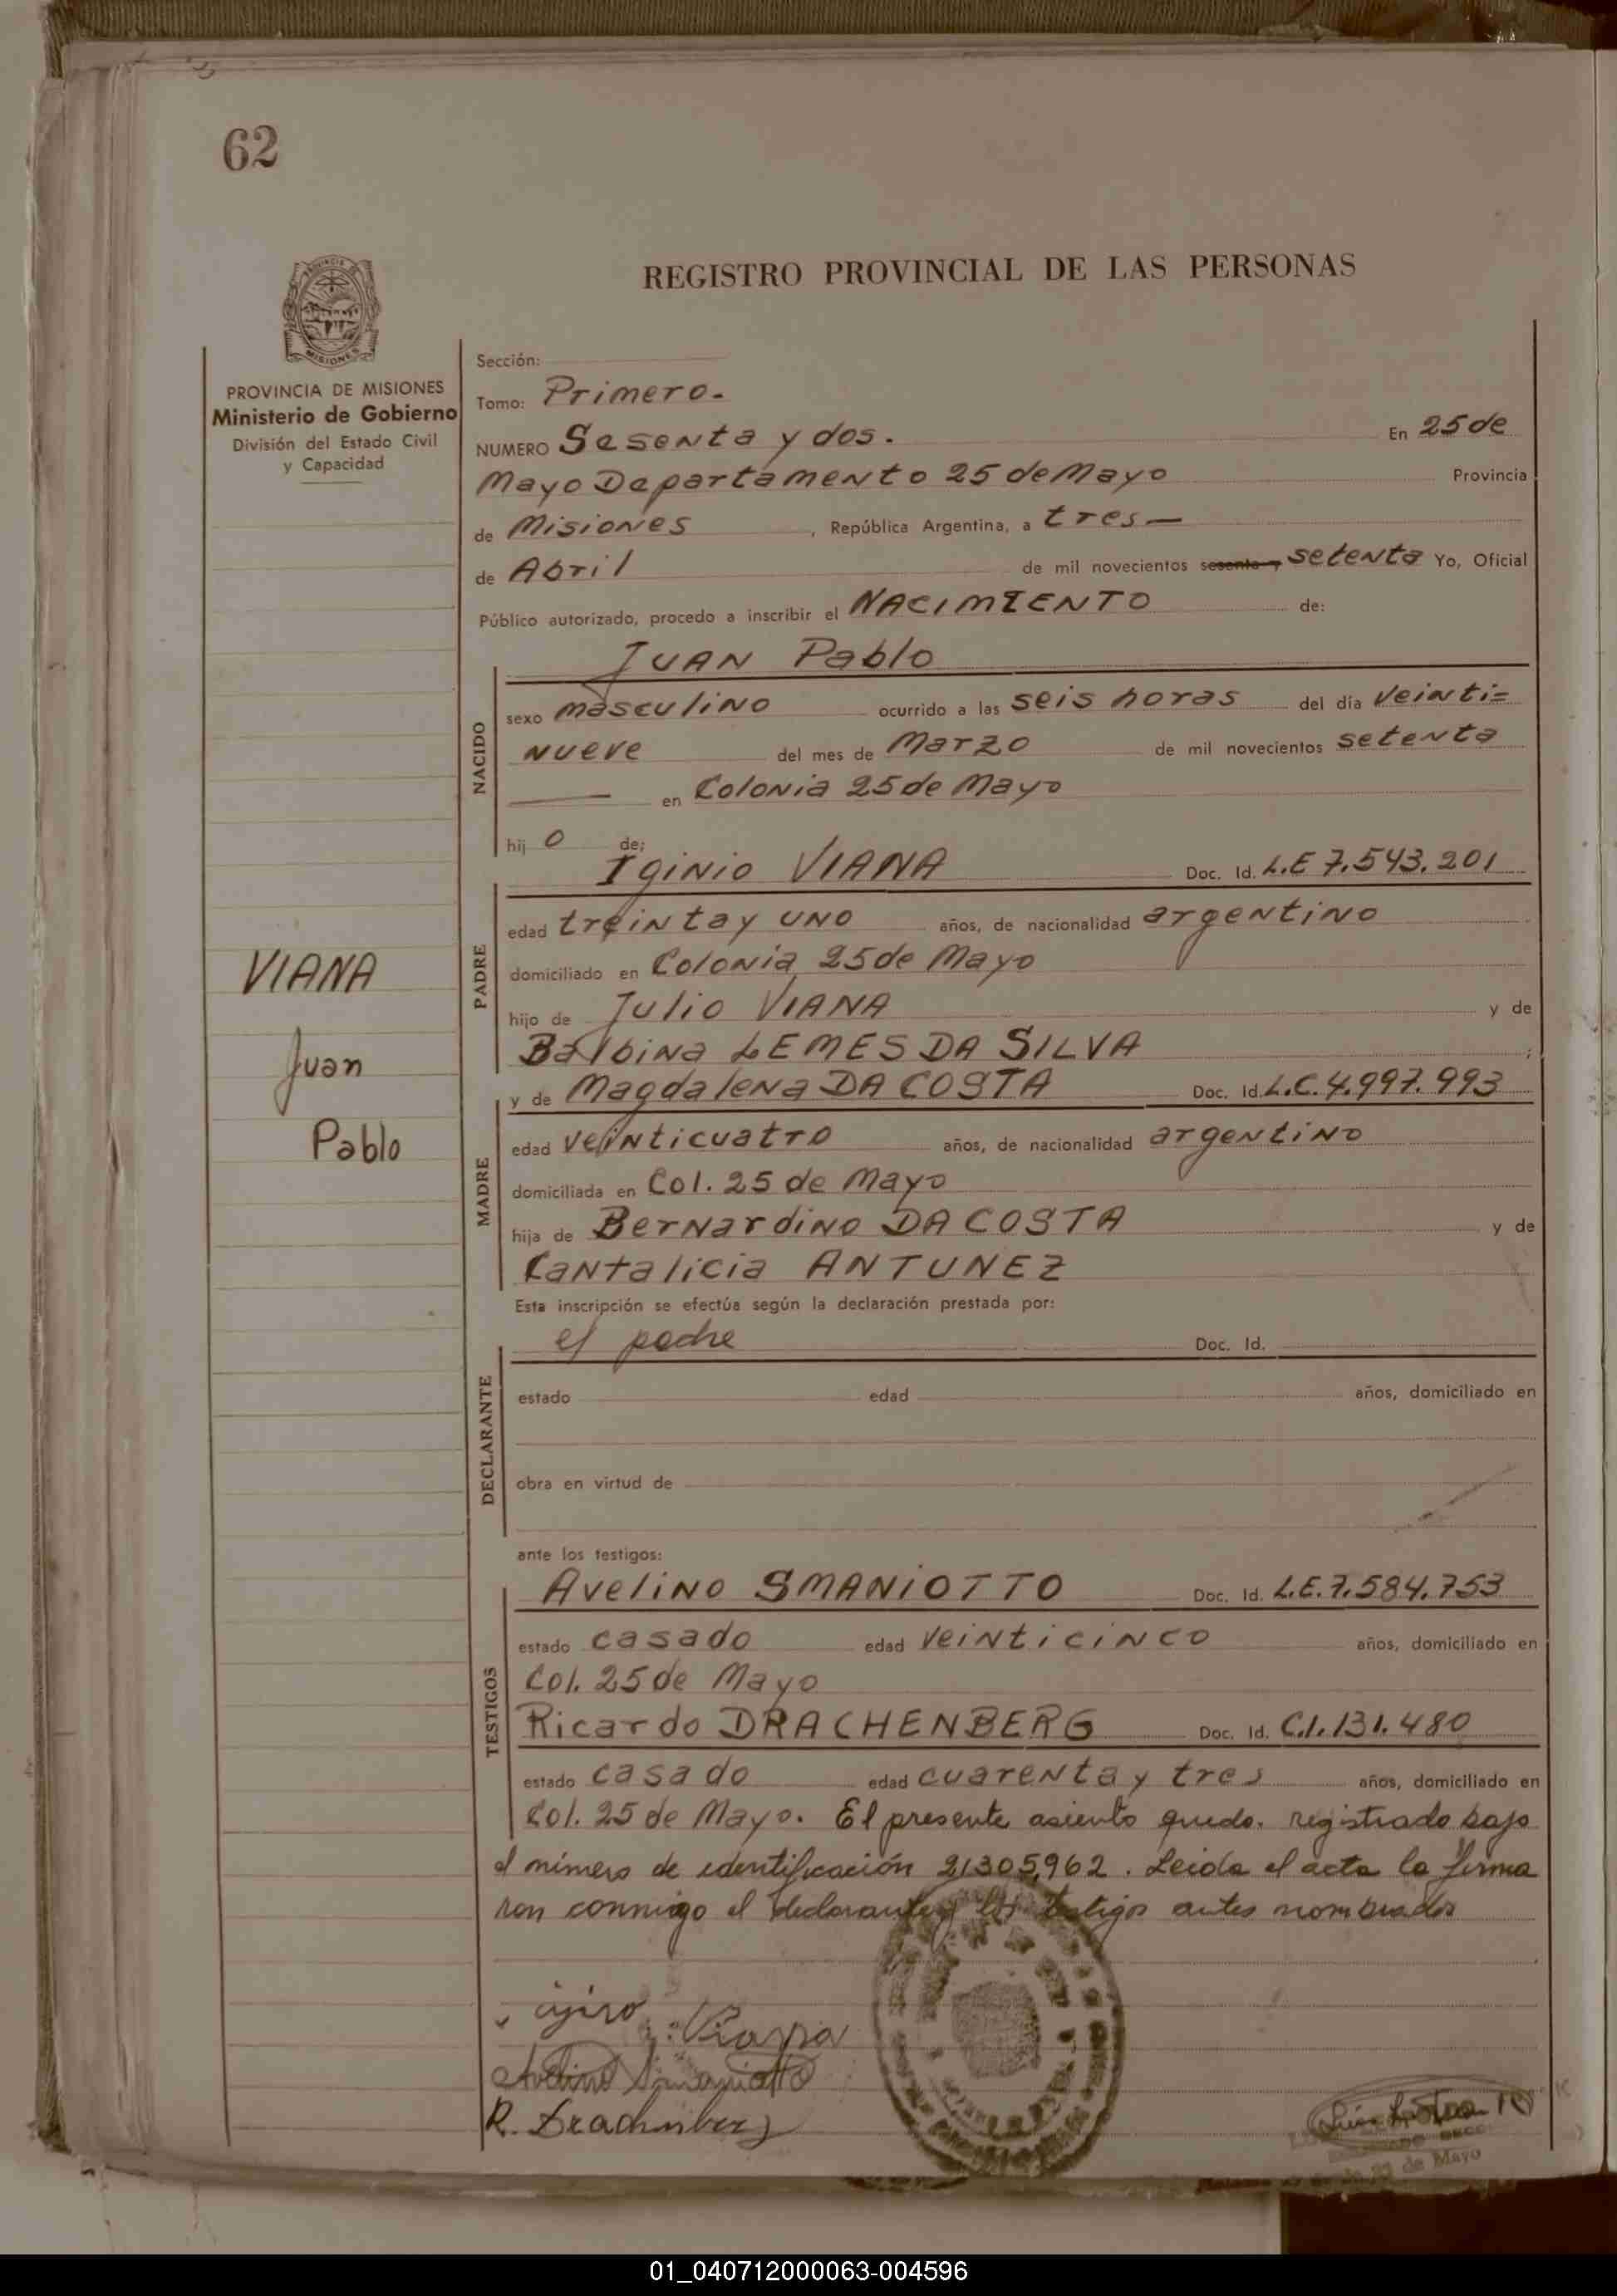 62
REGISTRO PROVINCIAL DE LAS PERSONAS
PROVINCIA DE MISIONES
Ministerio de Gobierno
División del Estado Civil
y Capacidad
Sección:
Tomo: Primero.
NUMERO Sesenta y dos. En 25 de
Mayo Departamento 25 de Mayo Provincia
de Misiones, República Argentina, a tres —
de Abril de mil novecientos sesenta y setenta Yo, Oficial
Público autorizado, procedo a inscribir el NACIMIENTO de:
JUAN Pablo
NACIDO
sexo masculino ocurrido a las seis horas del día veinti=
nueve del mes de Marzo de mil novecientos setenta
— en Colonia 25 de Mayo
hij o de;
Iginio VIANA Doc. Id. L.E 7.543.201
PADRE
edad treinta y uno años, de nacionalidad argentino
domiciliado en Colonia 25 de Mayo
hijo de Julio VIANA y de
Balbina LEMES DA SILVA ;
VIANA
Juan
Pablo
y de Magdalena DA COSTA Doc. Id. L.C. 4.997.993
MADRE
edad veinticuatro años, de nacionalidad argentino
domiciliada en Col. 25 de Mayo
hija de Bernardino DA COSTA y de
Cantalicia ANTUNEZ
Esta inscripción se efectúa según la declaración prestada por:
el padre Doc. Id.
DECLARANTE
estado edad años, domiciliado en
obra en virtud de
ante los testigos:
Avelino SMANIOTTO Doc. Id. L.E. 7.584.753
TESTIGOS
estado casado edad veinticinco años, domiciliado en
Col. 25 de Mayo
Ricardo DRACHENBERG Doc. Id. C.I. 131.480
estado casado edad cuarenta y tres años, domiciliado en
Col. 25 de Mayo. El presente asiento queda. registrado bajo
el número de identificación 21305.962. Leida el acta la firma
ron conmigo el declarante y los testigos antes nombrados
Viana
Avelino Smaniotto
R. Drachenberg
25 de Mayo
01_040712000063-004596